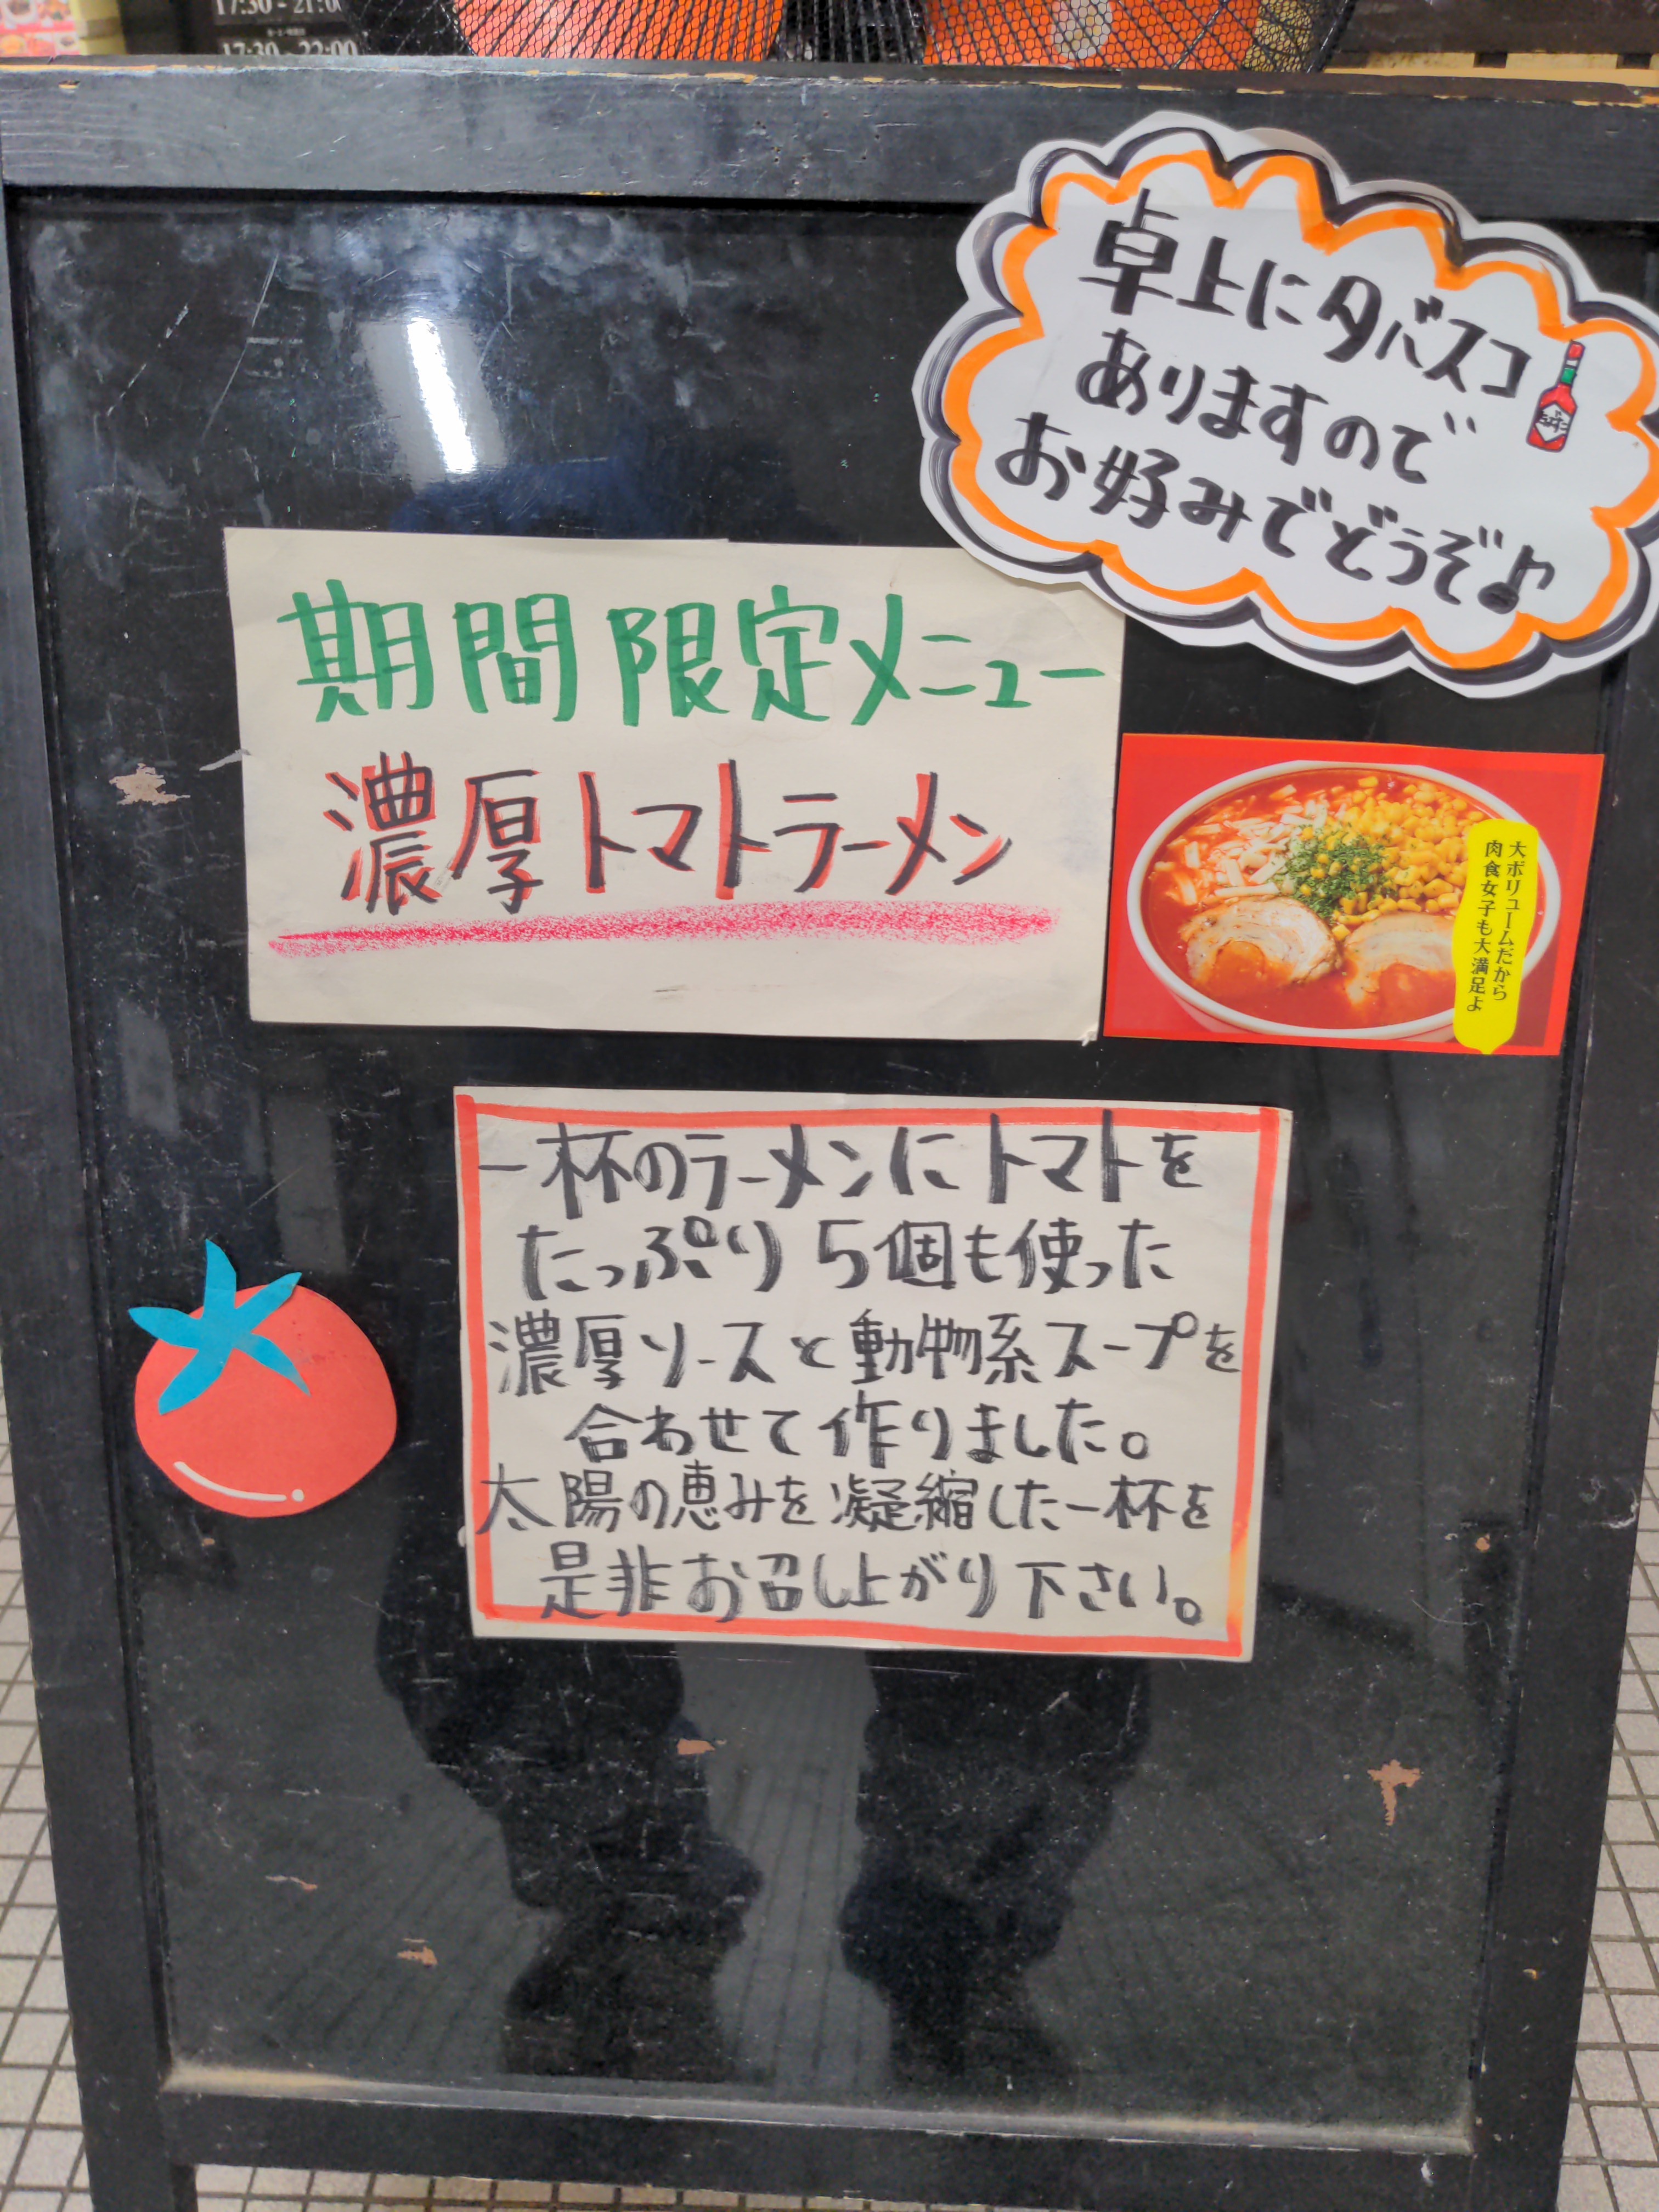 17:30 - 21:00
17:30 - 22:00
卓上にタバスコ
ありますので
お好みでどうぞ♪
期間限定メニュー
濃厚トマトラーメン
大ボリュームだから
肉食女子も大満足よ
一杯のラーメンにトマトを
たっぷり5個も使った
濃厚ソースと動物系スープを
合わせて作りました。
太陽の恵みを凝縮した一杯を
是非お召し上がり下さい。